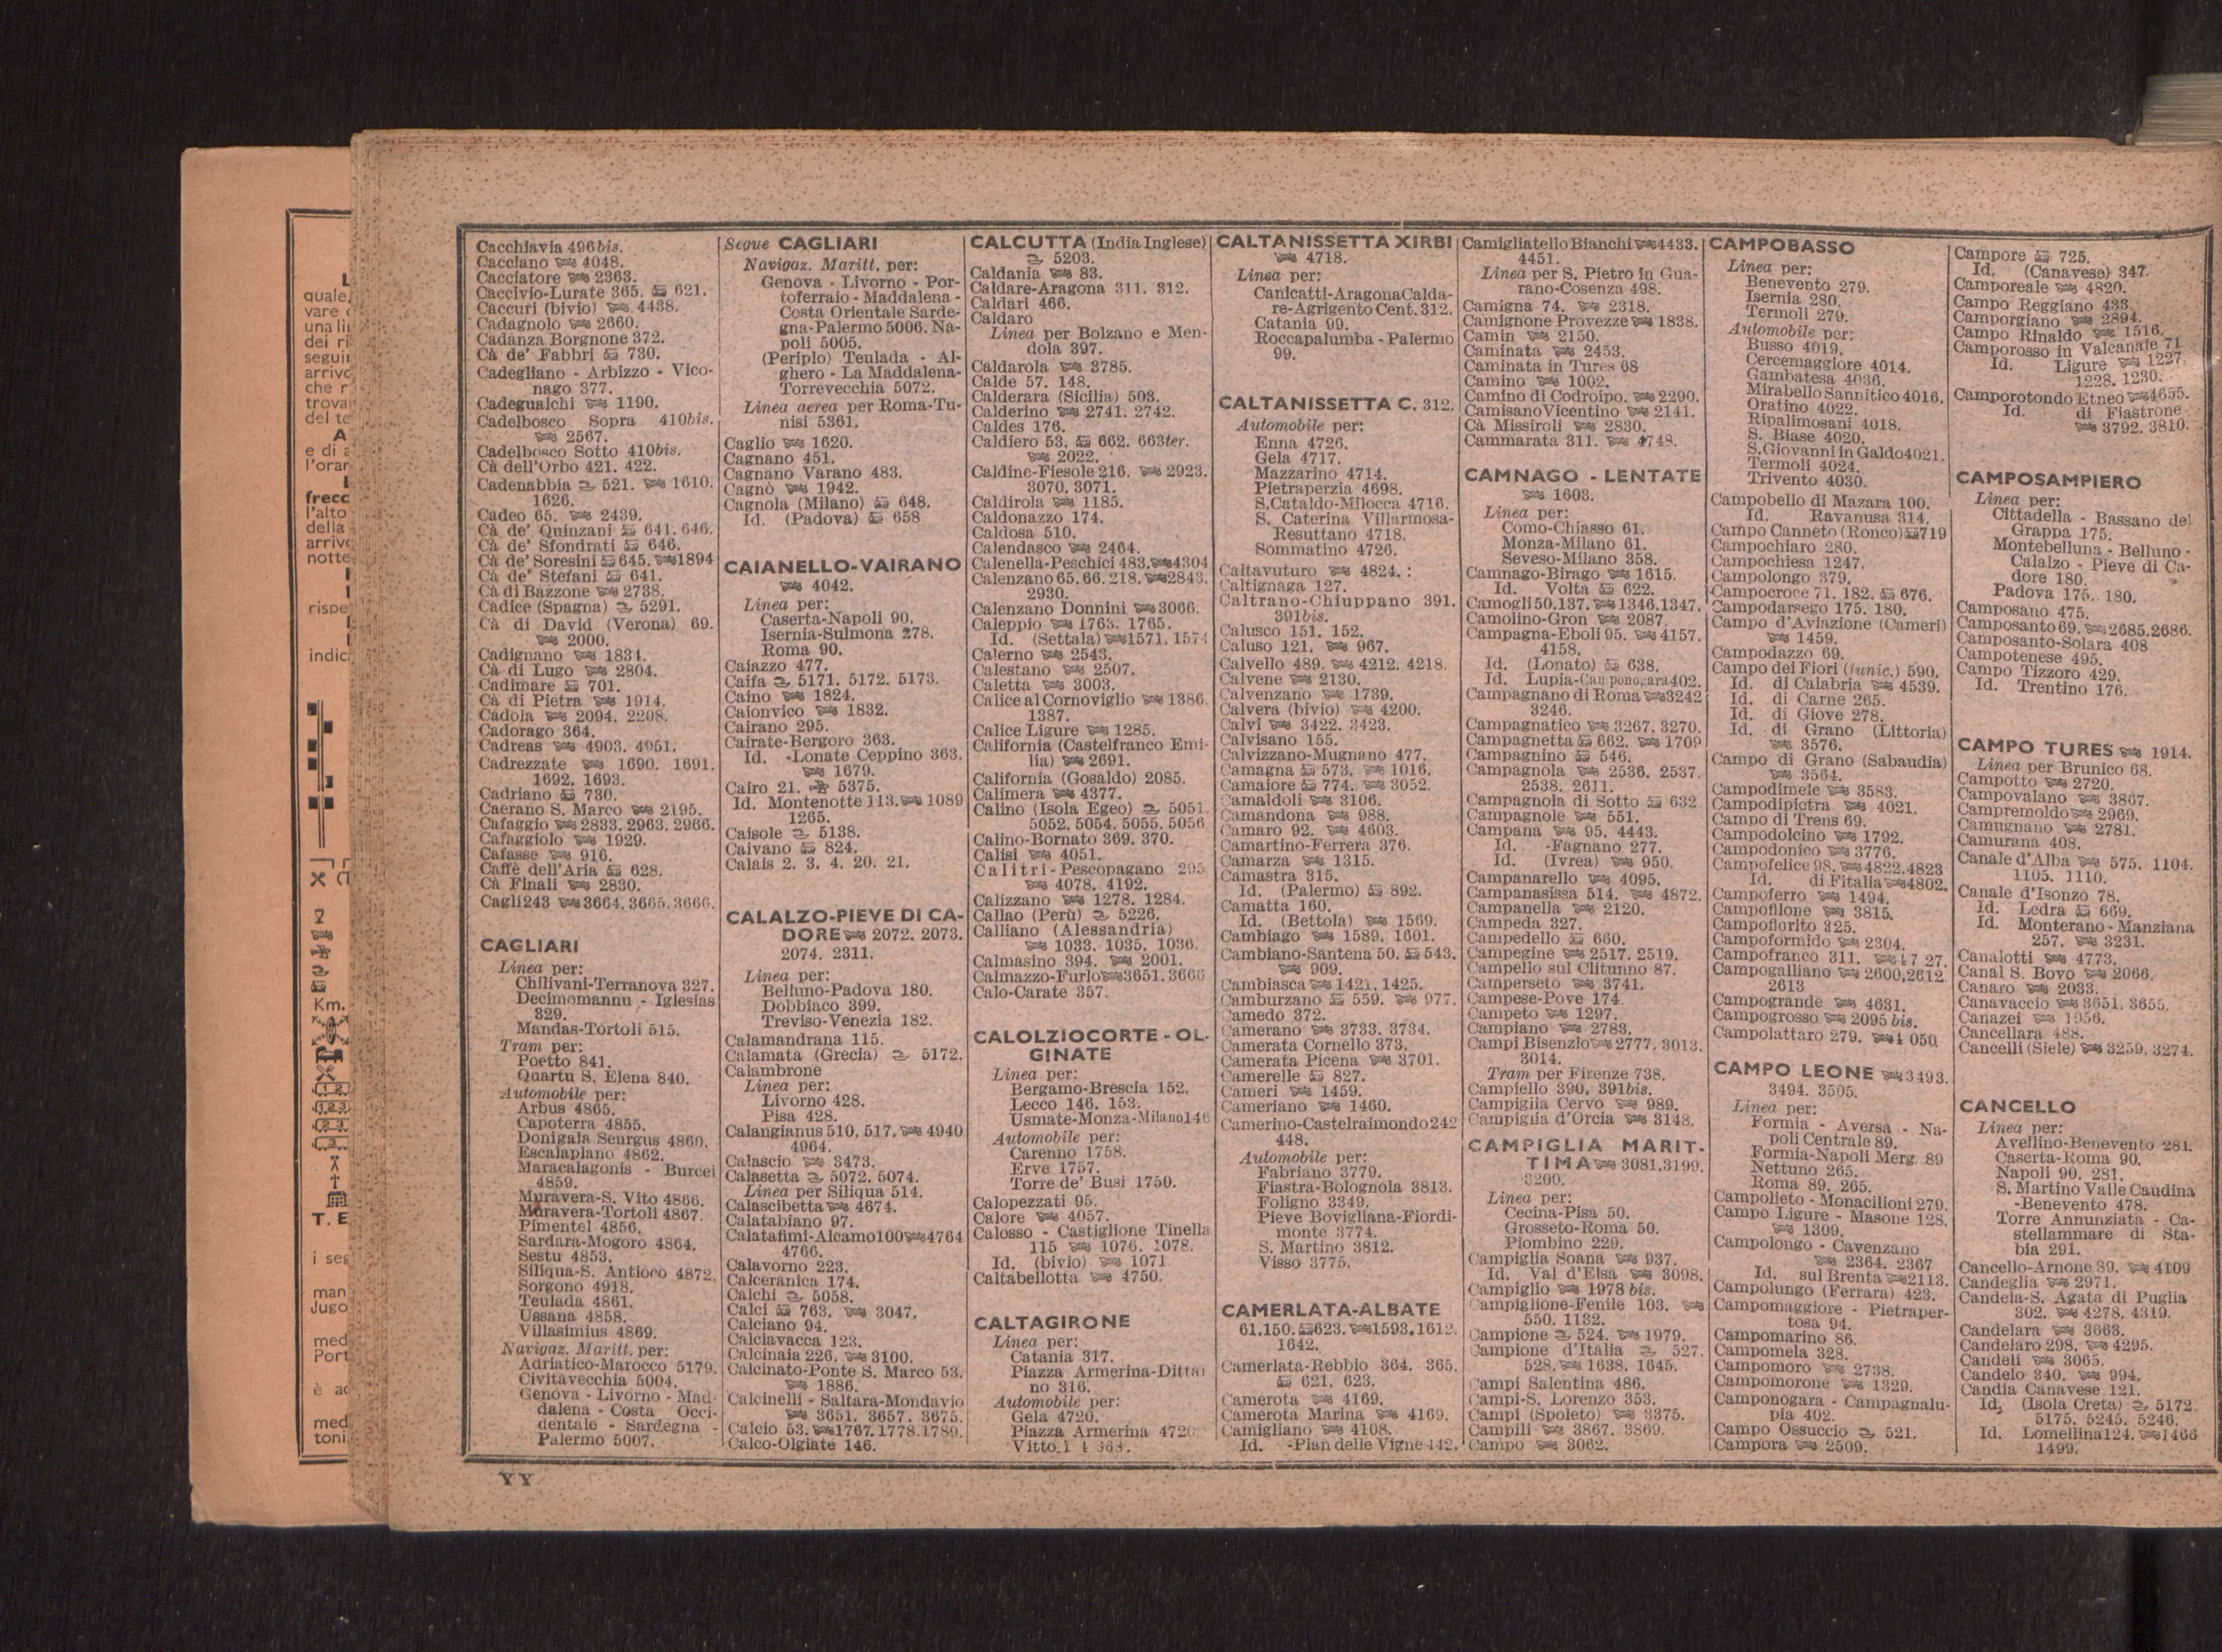 Cacchiavia 496bis.
Cacciano 4048.
Cacciatore 2363.
Caccivio-Lurate 365. 621.
Caccuri (bivio) 4438.
Cadagnolo 2660.
Cadanza Borgnone 372.
Cà de' Fabbri 730.
Cadegliano - Arbizzo - Vico-
nago 377.
Cadegualchi 1190.
Cadelbosco Sopra 410bis.
2567.
Cadelbosco Sotto 410bis.
Cà dell'Orbo 421. 422.
Cadenabbia 521. 1610.
1626.
Cadeo 65. 2439.
Cà de' Quinzani 641. 646.
Cà de' Sfondrati 646.
Cà de' Soresini 645. 1894
Cà de' Stefani 641.
Cà di Bazzone 2738.
Cadice (Spagna) 5291.
Cà di David (Verona) 69.
2000.
Cadignano 1834.
Cà di Lugo 2804.
Cadimare 701.
Cà di Pietra 1914.
Cadola 2094. 2208.
Cadorago 364.
Cadreas 4903. 4951.
Cadrezzate 1690. 1691.
1692. 1693.
Cadriano 730.
Caerano S. Marco 2195.
Cafaggio 2833. 2963. 2966.
Cafaggiolo 1929.
Cafasse 916.
Caffè dell'Aria 628.
Cà Finali 2830.
Cagli 243 3664. 3665. 3666.
CAGLIARI
Linea per:
Chilivani-Terranova 327.
Decimomannu - Iglesias
329.
Mandas-Tortoli 515.
Tram per:
Poetto 841.
Quartu S. Elena 840.
Automobile per:
Arbus 4865.
Capoterra 4855.
Donigala Seurgus 4860.
Escalaplano 4862.
Maracalagonis - Burcei
4859.
Muravera-S. Vito 4866.
Muravera-Tortoli 4867.
Pimentel 4856.
Sardara-Mogoro 4864.
Sestu 4853.
Siliqua-S. Antioco 4872.
Sorgono 4918.
Teulada 4861.
Ussana 4858.
Villasimius 4869.
Navigaz. Maritt. per:
Adriatico-Marocco 5179.
Civitavecchia 5004.
Genova - Livorno - Mad-
dalena - Costa Occi-
dentale - Sardegna -
Palermo 5007.
YY
Segue CAGLIARI
Navigaz. Maritt. per:
Genova - Livorno - Por-
toferraio - Maddalena -
Costa Orientale Sarde-
gna-Palermo 5006. Na-
poli 5005.
(Periplo) Teulada - Al-
ghero - La Maddalena-
Torrevecchia 5072.
Linea aerea per Roma-Tu-
nisi 5361.
Caglio 1620.
Cagnano 451.
Cagnano Varano 483.
Cagnò 1942.
Cagnola (Milano) 648.
Id. (Padova) 658
CAIANELLO-VAIRANO
4042.
Linea per:
Caserta-Napoli 90.
Isernia-Sulmona 278.
Roma 90.
Caiazzo 477.
Caifa 5171. 5172. 5173.
Caino 1824.
Caionvico 1832.
Cairano 295.
Cairate-Bergoro 363.
Id. -Lonate Ceppino 363.
1679.
Cairo 21. 5375.
Id. Montenotte 113. 1089
1265.
Caisole 5138.
Caivano 824.
Calais 2. 3. 4. 20. 21.
CALALZO-PIEVE DI CA-
DORE 2072. 2073.
2074. 2311.
Linea per:
Belluno-Padova 180.
Dobbiaco 399.
Treviso-Venezia 182.
Calamandrana 115.
Calamata (Grecia) 5172.
Calambrone
Linea per:
Livorno 428.
Pisa 428.
Calangianus 510. 517. 4940
4964.
Calascio 3473.
Calasetta 5072. 5074.
Linea per Siliqua 514.
Calascibetta 4674.
Calatabiano 97.
Calatafimi-Alcamo 100 4764
4766.
Calavorno 223.
Calceranica 174.
Calchi 5058.
Calci 763. 3047.
Calciano 94.
Calciavacca 123.
Calcinaia 226. 3100.
Calcinato-Ponte S. Marco 53.
1886.
Calcinelli - Saltara-Mondavio
3651. 3657. 3675.
Calcio 53. 1767. 1778. 1789.
Calco-Olgiate 146.
CALCUTTA (India Inglese)
5203.
Caldania 83.
Caldare-Aragona 311. 312.
Caldari 466.
Caldaro
Linea per Bolzano e Men-
dola 397.
Caldarola 3785.
Calde 57. 148.
Calderara (Sicilia) 503.
Calderino 2741. 2742.
Caldes 176.
Caldiero 53. 662. 663ter.
2022.
Caldine-Fiesole 216. 2923.
3070. 3071.
Caldirola 1185.
Caldonazzo 174.
Caldosa 510.
Calendasco 2464.
Calenella-Peschici 483. 4304
Calenzano 65. 66. 218. 2843.
2930.
Calenzano Donnini 3066.
Caleppio 1763. 1765.
Id. (Settala) 1571. 1574
Calerno 2543.
Calestano 2507.
Caletta 3003.
Calice al Cornoviglio 1386.
1387.
Calice Ligure 1285.
California (Castelfranco Emi-
lia) 2691.
California (Gosaldo) 2085.
Calimera 4377.
Calino (Isola Egeo) 5051.
5052. 5054. 5055. 5056
Calino-Bornato 369. 370.
Calisi 4051.
Calitri-Pescopagano 295
4078. 4192.
Calizzano 1278. 1284.
Callao (Perù) 5226.
Calliano (Alessandria)
1033. 1035. 1036.
Calmasino 394. 2001.
Calmazzo-Furlo 3651. 3666
Calo-Carate 357.
CALOLZIOCORTE - OL-
GINATE
Linea per:
Bergamo-Brescia 152.
Lecco 146. 153.
Usmate-Monza-Milano 146
Automobile per:
Carenno 1758.
Erve 1757.
Torre de' Busi 1750.
Calopezzati 95.
Calore 4057.
Calosso - Castiglione Tinella
115 1076. 1078.
Id. (bivio) 1071
Caltabellotta 4750.
CALTAGIRONE
Linea per:
Catania 317.
Piazza Armerina-Dittai
no 316.
Automobile per:
Gela 4720.
Piazza Armerina 4720
CALTANISSETTA XIRBI
4718.
Linea per:
Canicatti-Aragona Calda-
re-Agrigento Cent. 312.
Catania 99.
Roccapalumba - Palermo
99.
CALTANISSETTA C. 312.
Automobile per:
Enna 4726.
Gela 4717.
Mazzarino 4714.
Pietraperzia 4698.
S. Cataldo-Milocca 4716.
S. Caterina Villarmosa-
Resuttano 4718.
Sommatino 4726.
Caltavuturo 4824. :
Caltignaga 127.
Caltrano-Chiuppano 391.
391bis.
Calusco 151. 152.
Caluso 121. 967.
Calvello 489. 4212. 4218.
Calvene 2130.
Calvenzano 1739.
Calvera (bivio) 4200.
Calvi 3422. 3423.
Calvisano 155.
Calvizzano-Mugnano 477.
Camagna 573. 1016.
Camaiore 774. 3052.
Camaldoli 3106.
Camandona 988.
Camaro 92. 4603.
Camartino-Ferrera 376.
Camarza 1315.
Camastra 315.
Id. (Palermo) 892.
Camatta 160.
Id. (Bettola) 1569.
Cambiago 1589. 1601.
Cambiano-Santena 50. 543.
909.
Cambiasca 1421. 1425.
Camburzano 559. 977.
Camedo 372.
Camerano 3733. 3734.
Camerata Cornello 373.
Camerata Picena 3701.
Camerelle 827.
Cameri 1459.
Cameriano 1460.
Camerino-Castelraimondo 242
448.
Automobile per:
Fabriano 3779.
Fiastra-Bolognola 3813.
Foligno 3349.
Pieve Bovigliana-Fiordi-
monte 3774.
S. Martino 3812.
Visso 3775.
CAMERLATA-ALBATE
61. 150. 623. 1593. 1612.
1642.
Camerlata-Rebbio 364. 365.
621. 623.
Camerota 4169.
Camerota Marina 4169.
Camigliano 4108.
Id. -Pian delle Vigne 442.
Camigliatello Bianchi 4433.
4451.
Linea per S. Pietro in Gua-
rano-Cosenza 498.
Camigna 74. 2318.
Camignone Provezze 1838.
Camin 2150.
Caminata 2453.
Caminata in Tures 68
Camino 1002.
Camino di Codroipo. 2290.
Camisano Vicentino 2141.
Cà Missiroli 2830.
Cammarata 311. 4748.
CAMNAGO - LENTATE
1603.
Linea per:
Como-Chiasso 61.
Monza-Milano 61.
Seveso-Milano 358.
Camnago-Birago 1615.
Id. Volta 622.
Camogli 50. 137. 1346. 1347.
Camolino-Gron 2087.
Campagna-Eboli 95. 4157.
4158.
Id. (Lonato) 638.
Id. Lupia-Camponogara 402.
Campagnano di Roma 3242
3246.
Campagnatico 3267. 3270.
Campagnetta 662. 1709
Campagnino 546.
Campagnola 2536. 2537.
2538. 2611.
Campagnola di Sotto 632
Campagnole 551.
Campana 95. 4443.
Id. -Fagnano 277.
Id. (Ivrea) 950.
Campanarello 4095.
Campanasissa 514. 4872.
Campanella 2120.
Campeda 327.
Campedello 660.
Campegine 2517. 2519.
Campello sul Clitunno 87.
Camperseto 3741.
Campese-Pove 174.
Campeto 1297.
Campiano 2783.
Campi Bisenzio 2777. 3013.
3014.
Tram per Firenze 738.
Campiello 390. 391bis.
Campiglia Cervo 989.
Campiglia d'Orcia 3148.
CAMPIGLIA MARIT-
TIMA 3081. 3199.
3200.
Linea per:
Cecina-Pisa 50.
Grosseto-Roma 50.
Piombino 229.
Campiglia Soana 937.
Id. Val d'Elsa 3098.
Campiglio 1978 bis.
Campiglione-Fenile 103.
550. 1132.
Campione 524. 1979.
Campione d'Italia 527.
528. 1638. 1645.
Campi Salentina 486.
Campi-S. Lorenzo 353.
Campi (Spoleto) 3375.
Campili 3867. 3869.
Campo 3062.
CAMPOBASSO
Linea per:
Benevento 279.
Isernia 280.
Termoli 279.
Automobile per:
Busso 4019.
Cercemaggiore 4014.
Gambatesa 4036.
Mirabello Sannitico 4016.
Oratino 4022.
Ripalimosani 4018.
S. Biase 4020.
S. Giovanni in Galdo 4021.
Termoli 4024.
Trivento 4030.
Campobello di Mazara 100.
Id. Ravanusa 314.
Campo Canneto (Ronco) 719
Campochiaro 280.
Campochiesa 1247.
Campolongo 379.
Campocroce 71. 182. 676.
Campodarsego 175. 180.
Campo d'Aviazione (Cameri)
1459.
Campodazzo 69.
Campo dei Fiori (funic.) 590.
Id. di Calabria 4539.
Id. di Carne 265.
Id. di Giove 278.
Id. di Grano (Littoria)
3576.
Campo di Grano (Sabaudia)
3564.
Campodimele 3583.
Campodipietra 4021.
Campo di Trens 69.
Campodolcino 1792.
Campodonico 3776.
Campofelice 98. 4822. 4823
Id. di Fitalia 4802.
Campoferro 1494.
Campofilone 3815.
Campofiorito 325.
Campoformido 2304.
Campofranco 311.
Campogalliano 2600. 2612.
2613
Campogrande 4631.
Campogrosso 2095 bis.
Campolattaro 279.
CAMPO LEONE 3493.
3494. 3505.
Linea per:
Formia - Aversa - Na-
poli Centrale 89.
Formia-Napoli Merg. 89
Nettuno 265.
Roma 89. 265.
Campolieto - Monacilioni 279.
Campo Ligure - Masone 128.
1309.
Campolongo - Cavenzano
2364. 2367
Id. sul Brenta 2113.
Campolungo (Ferrara) 423.
Campomaggiore - Pietraper-
tosa 94.
Campomarino 86.
Campomela 328.
Campomoro 2738.
Campomorone 1329.
Camponogara - Campagnalu-
pia 402.
Campo Ossuccio 521.
Campora 2509.
Campore 725.
Id. (Canavese) 347.
Camporeale 4820.
Campo Reggiano 433.
Camporgiano 2894.
Campo Rinaldo 1516.
Camporosso in Valcanale 71
Id. Ligure 1227.
1228. 1230.
Camporotondo Etneo 4655.
Id. di Fiastrone
3792. 3810.
CAMPOSAMPIERO
Linea per:
Cittadella - Bassano del
Grappa 175.
Montebelluna - Belluno -
Calalzo - Pieve di Ca-
dore 180.
Padova 175. 180.
Camposano 475.
Camposanto 69. 2685. 2686.
Camposanto-Solara 408
Campotenese 495.
Campo Tizzoro 429.
Id. Trentino 176.
CAMPO TURES 1914.
Linea per Brunico 68.
Campotto 2720.
Campovalano 3867.
Campremoldo 2969.
Camugnano 2781.
Camurana 408.
Canale d'Alba 575. 1104.
1105. 1110.
Canale d'Isonzo 78.
Id. Ledra 669.
Id. Monterano-Manziana
257. 3231.
Canalotti 4773.
Canal S. Bovo 2066.
Canaro 2033.
Canavaccio 3651. 3655.
Canazei 1956.
Cancellara 488.
Cancelli (Siele) 3259. 3274.
CANCELLO
Linea per:
Avellino-Benevento 281.
Caserta-Roma 90.
Napoli 90. 281.
S. Martino Valle Caudina
-Benevento 478.
Torre Annunziata - Ca-
stellammare di Sta-
bia 291.
Cancello-Arnone 89. 4109
Candeglia 2971.
Candela-S. Agata di Puglia
302. 4278. 4319.
Candelara 3663.
Candelaro 298. 4295.
Candeli 3065.
Candelo 340. 994.
Candia Canavese 121.
Id. (Isola Creta) 5172
5175. 5245. 5246.
Id. Lomellina 124. 1466
1499.